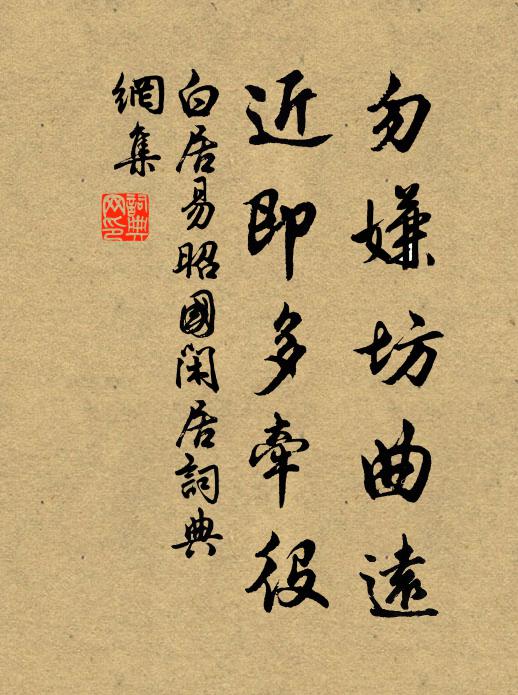 勿嫌坊曲遠
近即多牽役
白居易昭國閑居詞典
網集
詞典
网印